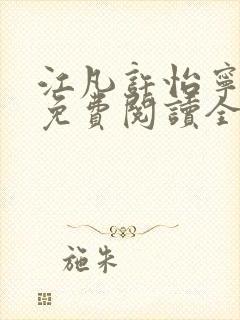 江凡許怡寧
免費閱讀全
施朱